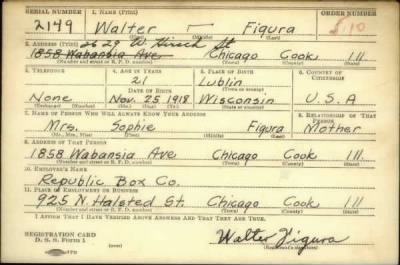 SERIAL NUMBER 1. NAME (Print) ORDER NUMBER
2149 Walter — Figura 510
(First) (Middle) (Last)
2. ADDRESS (Print) 2629 W Hirsch St
1858 Wabansia Ave Chicago Cook Ill
(Number and street or R. F. D. number) (Town) (County) (State)
3. TELEPHONE 4. AGE IN YEARS 5. PLACE OF BIRTH 6. COUNTRY OF CITIZENSHIP
21 Lublin
DATE OF BIRTH (Town or county)
None Nov. 25 1918 Wisconsin U.S.A
(Exchange) (Number) (Mo.) (Day) (Yr.) (State or country)
7. NAME OF PERSON WHO WILL ALWAYS KNOW YOUR ADDRESS 8. RELATIONSHIP OF THAT PERSON
Mrs. Sophie Figura Mother
(Mr., Mrs., Miss) (First) (Middle) (Last)
9. ADDRESS OF THAT PERSON
1858 Wabansia Ave Chicago Cook Ill
(Number and street or R. F. D. number) (Town) (County) (State)
10. EMPLOYER'S NAME
Republic Box Co.
11. PLACE OF EMPLOYMENT OR BUSINESS
925 N. Halsted St. Chicago Cook Ill
(Number and street or R. F. D. number) (Town) (County) (State)
I AFFIRM THAT I HAVE VERIFIED ABOVE ANSWERS AND THAT THEY ARE TRUE.
REGISTRATION CARD
D. S. S. Form 1 Walter Figura
(Registrant's signature)